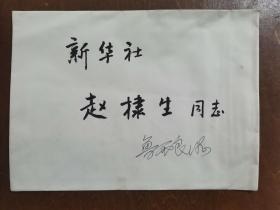 新华社
赵棣生同志